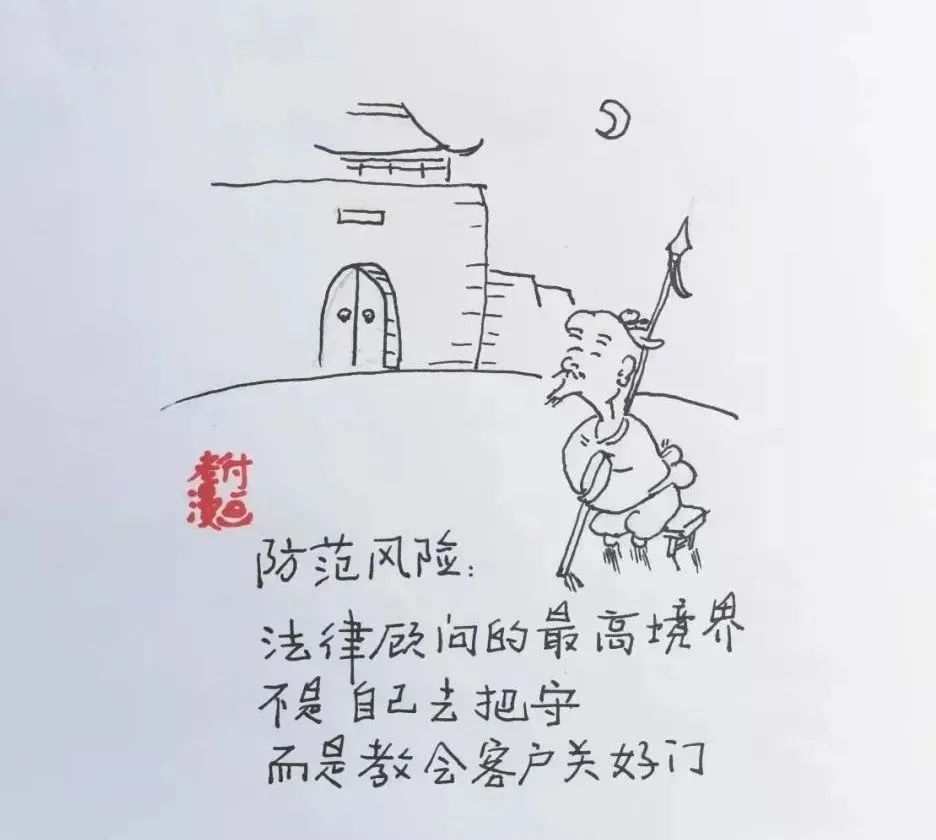 防范风险:
法律顾问的最高境界
不是自己去把守
而是教会客户关好门